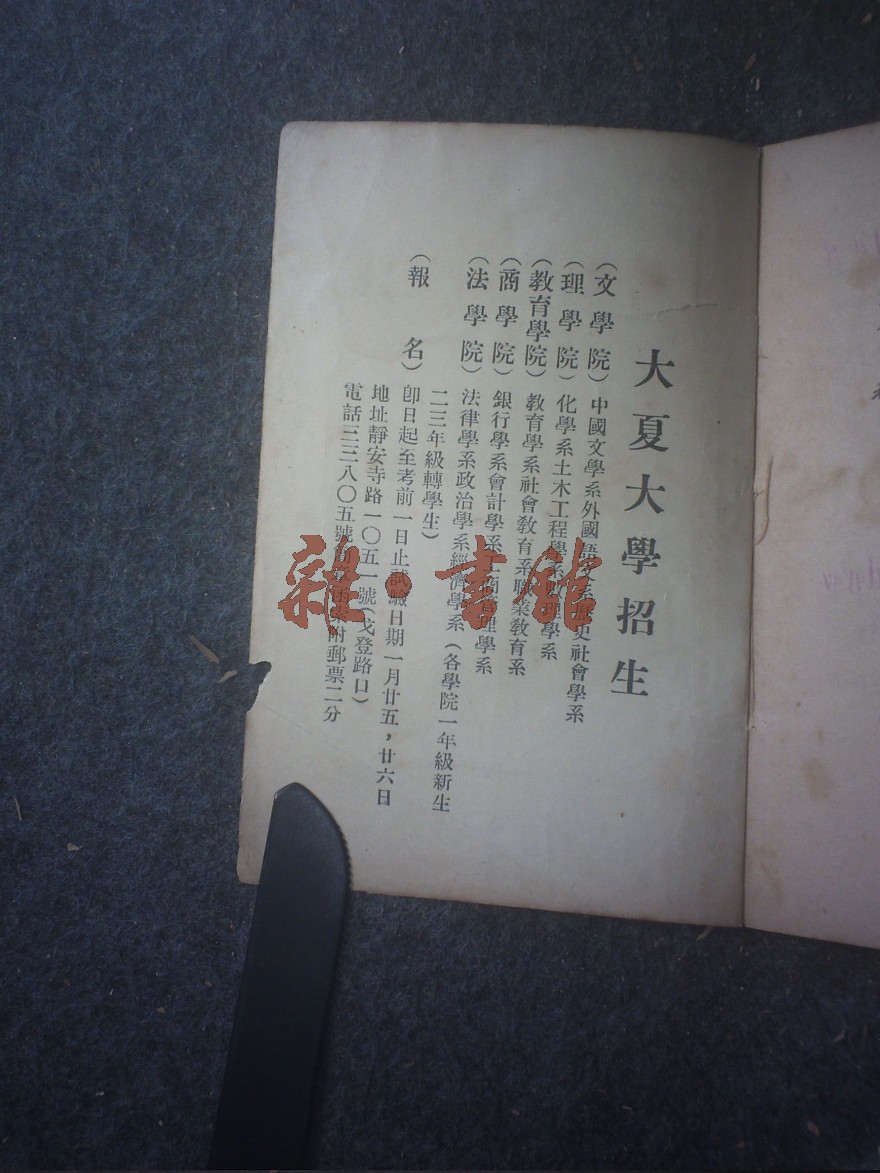 大夏大學招生
（文學院）中國文學系外國語文系歷史社會學系
（理學院）化學系土木工程學系數理學系
（教育學院）教育學系社會教育系職業教育系
（商學院）銀行學系會計學系工商管理學系
（法學院）法律學系政治學系經濟學系（各學院一年級新生
二三年級轉學生）
（報名）卽日起至考前一日止試驗日期一月廿五，廿六日
地址靜安寺路一〇五一號（戈登路口）
電話三三八〇五號 附郵票二分
雜·書館